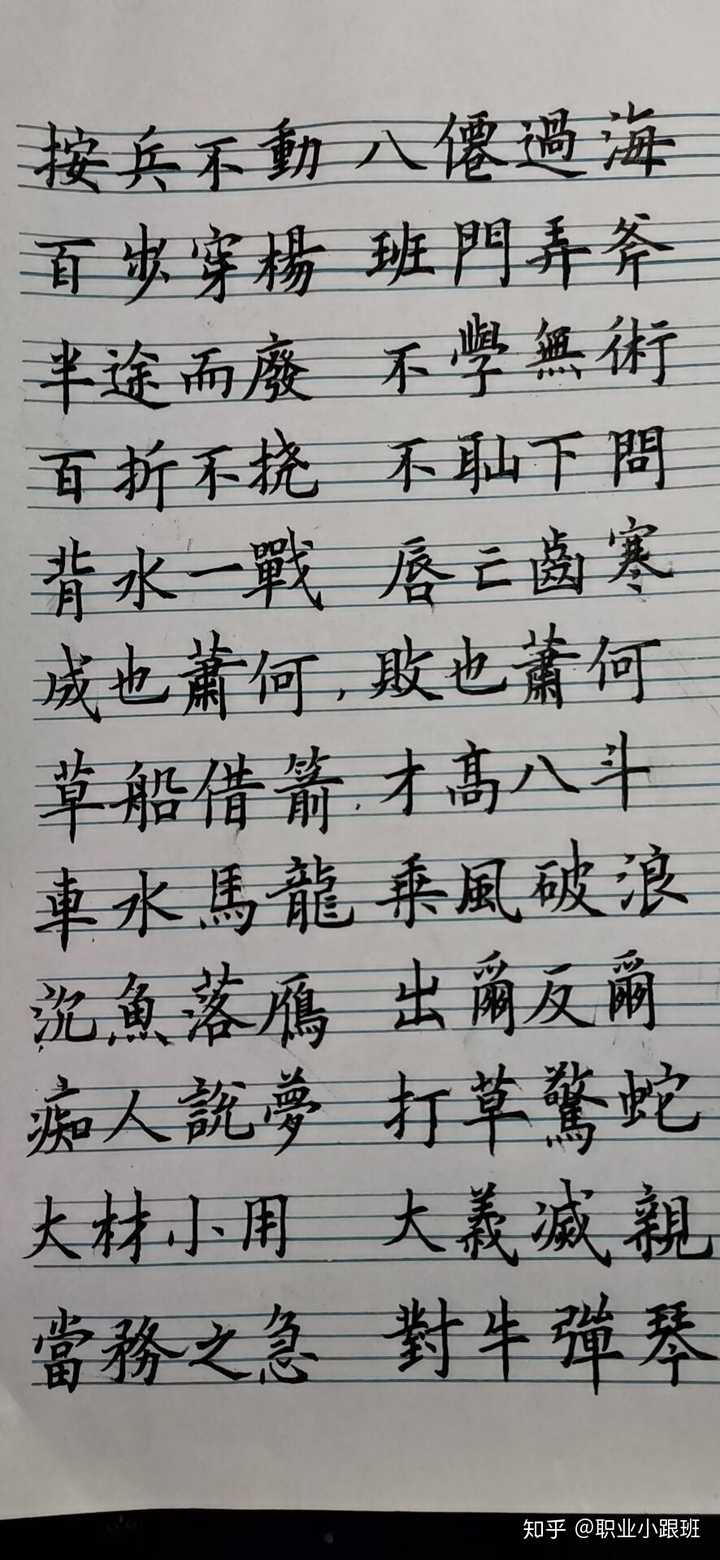 按兵不動 八僊過海
百步穿楊 班門弄斧
半途而廢 不學無術
百折不挠 不耻下問
背水一戰 唇亡齒寒
成也蕭何,敗也蕭何
草船借箭.才高八斗
車水馬龍 乘風破浪
沉魚落鴈 出爾反爾
痴人說夢 打草驚蛇
大材小用 大義滅親
當務之急 對牛彈琴
知乎 @职业小跟班